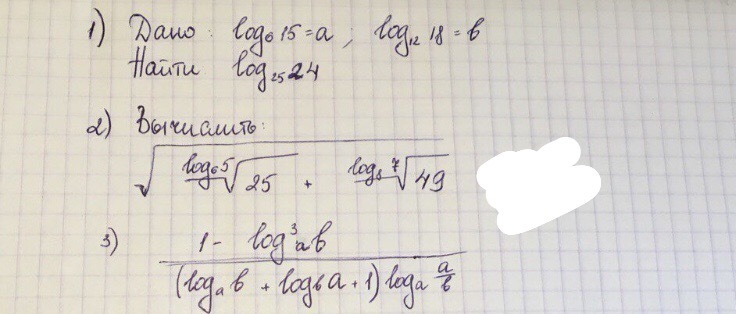 1) Дано: log₆ 15 = a ; log₁₂ 18 = b
Найти log₂₅ 24
2) Вычислить:
√( ^(log₆ 5)√25 + ^(log₈ 7)√49 )
3) (1 - log³ₐ b) / ((logₐ b + log_b a + 1) logₐ (a/b))